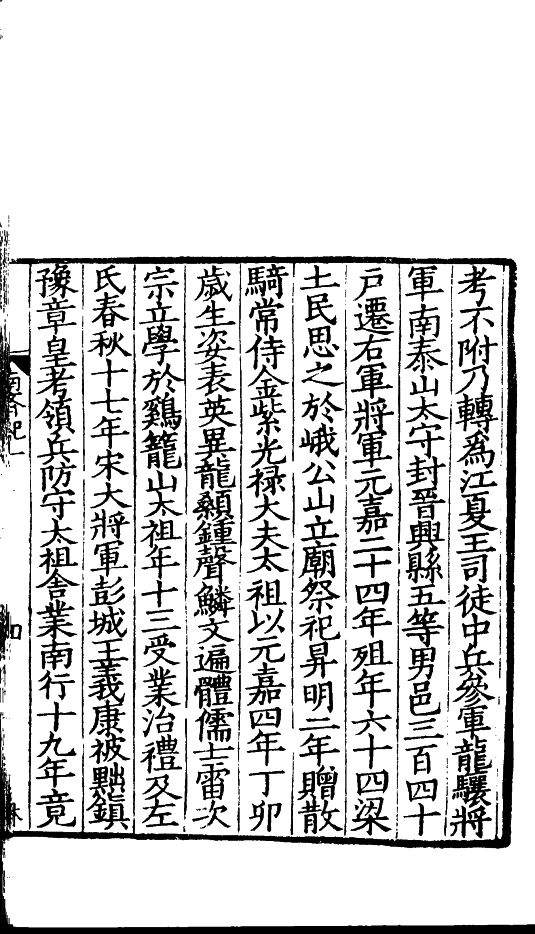 考不附乃轉爲江夏王司徒中兵參軍龍驤將
軍南泰山太守封晉興縣五等男邑三百四十
戸遷右軍將軍元嘉二十四年殂年六十四梁
土民思之於峨公山立廟祭祀昇明二年贈散
騎常侍金紫光禄大夫太祖以元嘉四年丁卯
歲生姿表英異龍顙鍾聲鱗文遍體儒士雷次
宗立學於雞籠山太祖年十三受業治禮及左
氏春秋十七年宋大將軍彭城王義康被黜鎮
豫章皇考領兵防守太祖舍業南行十九年竟